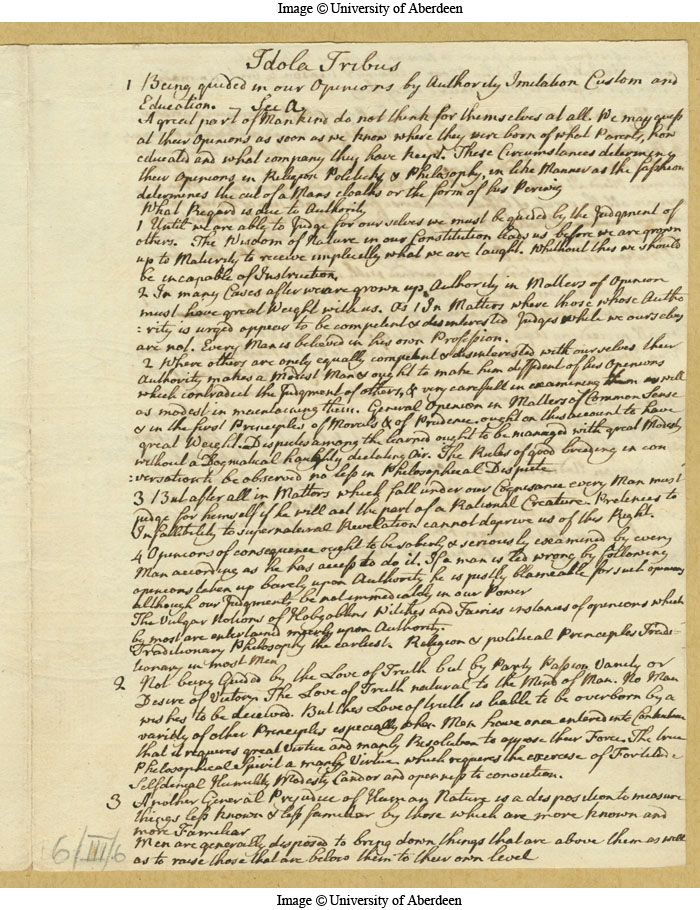 Image © University of Aberdeen
Idola Tribus
1 Being guided in our Opinions by Authority Imitation Custom and
Education. See A
A great part of Mankind do not think for themselves at all. We may guess
at their Opinions as soon as we know where they were born of what Parents, how
educated and what company they have keept. These Circumstances determining
their Opinions in Religion Politicks & Philosophy, in like Manner as the fashion
determines the cut of a Mans cloaths or the form of his Periwig
What Regard is due to Authority
1 Until we are able to Judge for our selves we must be guided by the Judgment of
others. The Wisdom of Nature in our Constitution leads us before we are grown
up to Maturity to receive implicitly what we are taught. Without this we should
be incapable of Instruction.
2 In many Cases after we are grown up Authority in Matters of Opinion
must have great Weight with us. As 1 In Matters where those whose Autho
:rity is urged appear to be competent & desinterested Judges while we ourselves
are not. Every Man is believed in his own Profession.
2 Where others are onely equally competent & desinterested with ourselves their
Authority makes a Modest Man & ought to make him diffident of his Opinions
which contradict the Judgment of others, & very carefull in examining them as well
as modest in maintaining them. General Opinion in Matters of Common Sense
& in the first Principles of Morals & of Prudence ought on this account to have
great Weight. Disputes among the learned ought to be managed with great Modesty
without a Dogmatical haughty dictating Air. The Rules of good breeding in con
:versation to be observed no less in Philosophical Dispute
3 But after all in Matters which fall under our Cognisance every Man must
judge for himself if he will act the part of a Rational Creature. Pretences to
Infallibility to supernatural Revelation cannot deprive us of this Right.
4 Opinions of consequence ought to be soberly & seriously examined by every
Man according as he has access to do it. If a man is led wrong by following
opinions taken up barely upon Authority he is justly blameable for such opinions
although our Judgments be not immediately in our Power
The Vulgar Notions of Hobgoblins Witches and Fairies instances of opinions which
by most are entertained meerly upon Authority.
Traditionary Philosophy the earliest. Religion & political Principles Tradi-
tionary in most Men
2 Not being Guided by the Love of Truth but by Party Passion Vanity or
Desire of Victory. The Love of Truth natural to the Mind of Man. No Man
wishes to be deceived. But this Love of truth is liable to be overborn by a
variety of other Principles especially when Men have once entered into
that it requires great Virtue and manly Resolution to oppose their Force. The true
Philosophical Spirit a manly Virtue which requires the exercise of Fortitude
Selfdenial Humility Modesty Candor and openness to conviction.
3 Another General Prejudice of Human Nature is a disposition to measure
things less known & less familiar by those which are more known and
more Familiar
Men are generally disposed to bring down things that are above them as well
as to raise those that are below them to their own level
6/III/6
Image © University of Aberdeen